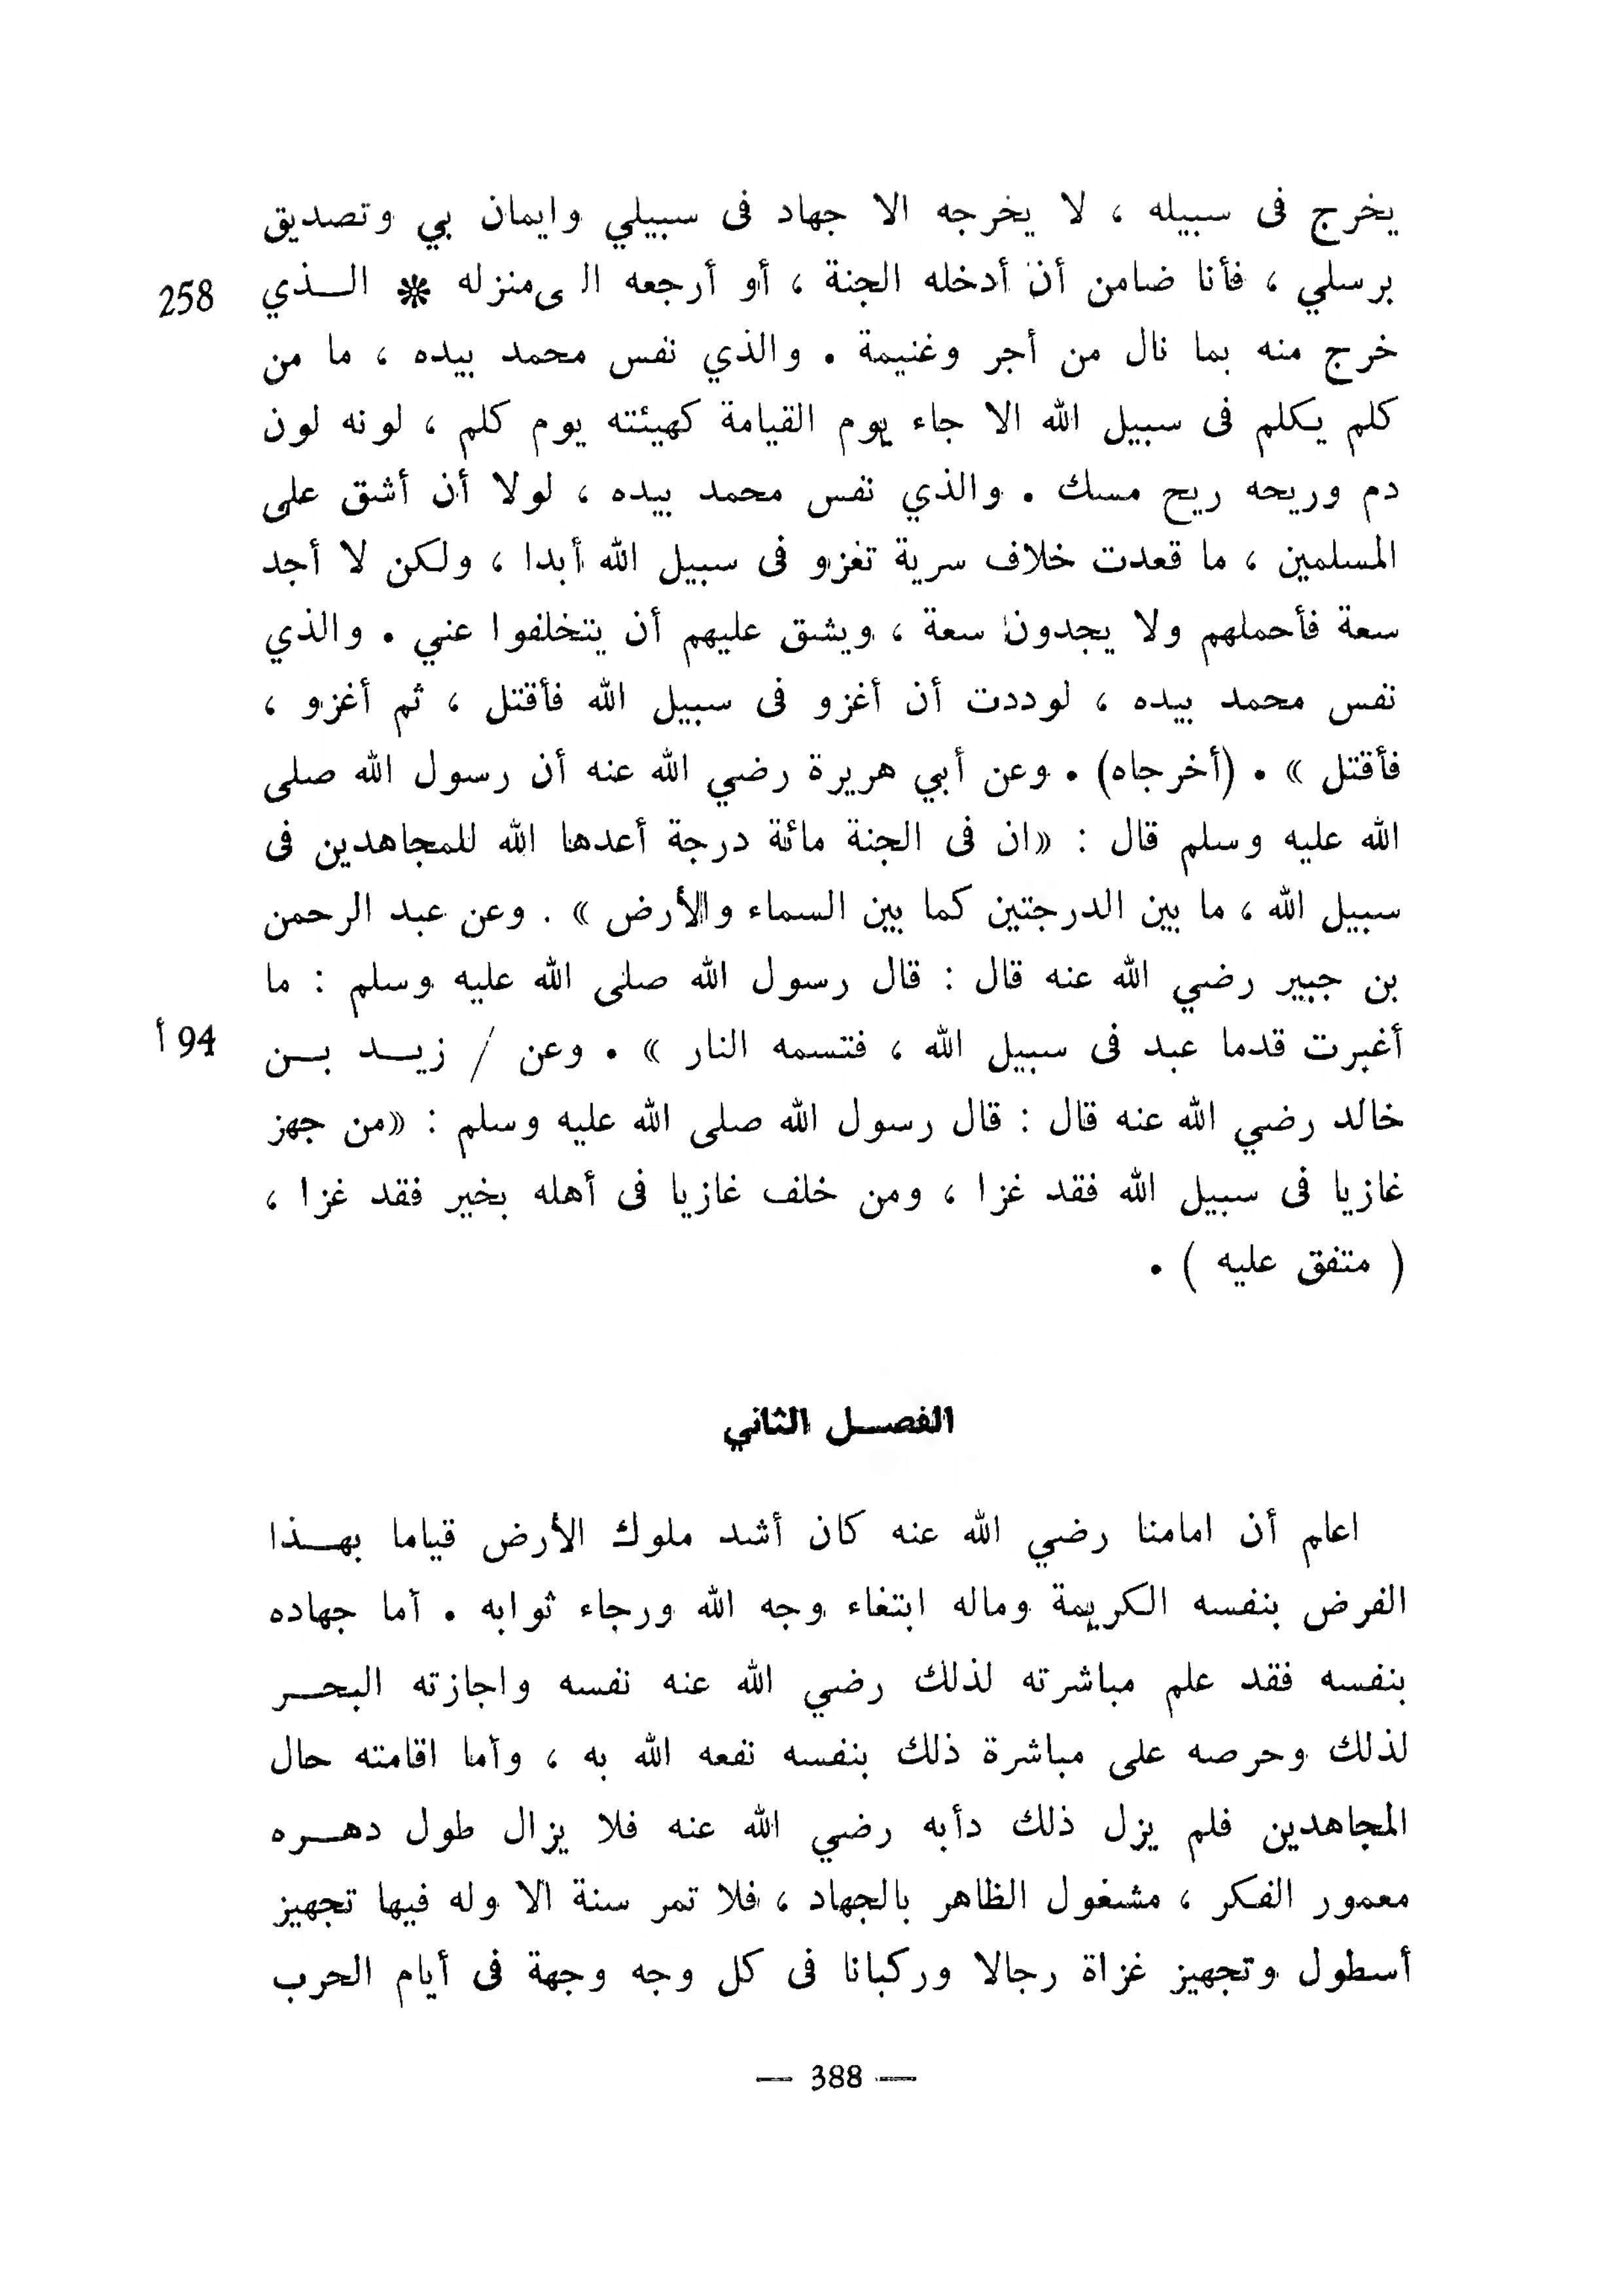 يخرج فى سبيله ، لا يخرجه الا جهاد فى سبيلي وايمان بي وتصديق
برسلي ، فأنا ضامن أن أدخله الجنة ، أو أرجعه ال ىمنزله * الــذي
258
خرج منه بما نال من أجر وغنيمة . والذي نفس محمد بيده ، ما من
كلم يكلم فى سبيل الله الا جاء يوم القيامة كهيئته يوم كلم ، لونه لون
دم وريحه ريح مسك . والذي نفس محمد بيده ، لولا أن أشق على
المسلمين ، ما قعدت خلاف سرية تغزو فى سبيل الله أبدا ، ولكن لا أجد
سعة فأحملهم ولا يجدون سعة ، ويشق عليهم أن يتخلفوا عني . والذي
نفس محمد بيده ، لوددت أن أغزو فى سبيل الله فأقتل ، ثم أغزو ،
فأقتل » . (أخرجاه) . وعن أبي هريرة رضي الله عنه أن رسول الله صلى
الله عليه وسلم قال : «ان فى الجنة مائة درجة أعدها الله للمجاهدين فى
سبيل الله ، ما بين الدرجتين كما بين السماء والأرض » . وعن عبد الرحمن
بن جبير رضي الله عنه قال : قال رسول الله صلى الله عليه وسلم : ما
أغبرت قدما عبد فى سبيل الله ، فتسمه النار » . وعن / زيــد بــن
94 أ
خالد رضي الله عنه قال : قال رسول الله صلى الله عليه وسلم : «من جهز
غازيا فى سبيل الله فقد غزا ، ومن خلف غازيا فى أهله بخير فقد غزا ،
( متفق عليه ) .
الفصــل الثاني
اعلم أن امامنا رضي الله عنه كان أشد ملوك الأرض قياما بهــذا
الفرض بنفسه الكريمة وماله ابتغاء وجه الله ورجاء ثوابه . أما جهاده
بنفسه فقد علم مباشرته لذلك رضي الله عنه نفسه واجازته البحــر
لذلك وحرصه على مباشرة ذلك بنفسه نفعه الله به ، وأما اقامته حال
المجاهدين فلم يزل ذلك دأبه رضي الله عنه فلا يزال طول دهــره
معمور الفكر ، مشغول الظاهر بالجهاد ، فلا تمر سنة الا وله فيها تجهيز
أسطول وتجهيز غزاة رجالا وركبانا فى كل وجه وجهة فى أيام الحرب
— 388 —